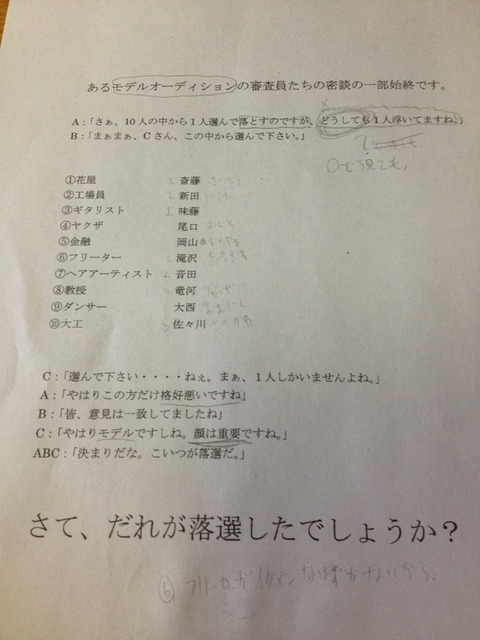 あるモデルオーディションの審査員たちの密談の一部始終です。
A:「さぁ、10人の中から1人選んで落とすのですが、どうしても1人浮いてますね。」
B:「まぁまぁ、Cさん、この中から選んで下さい。」
?
どう見ても、
①花屋 斎藤
②工場員 新田
③ギタリスト 味藤
④ヤクザ 尾口
⑤金融 岡山
⑥フリーター 滝沢
⑦ヘアアーティスト 音田
⑧教授 竜河
⑨ダンサー 大西
⑩大工 佐々川
C:「選んで下さい・・・・ねぇ。まぁ、1人しかいませんよね。」
A:「やはりこの方だけ格好悪いですね」
B:「皆、意見は一致してましたね」
C:「やはりモデルですしね。顔は重要ですね。」
ABC:「決まりだな。こいつが落選だ。」
さて、だれが落選したでしょうか?
⑥ フリーターがイケメンなはずがないから。